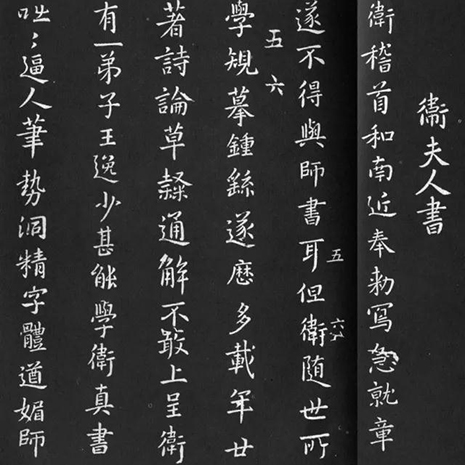 衞夫人書
衛稽首和南近奉勑寫急就章
五 六
遂不得與師書耳但衛随世所
五 六
學規摹鍾繇遂歷多載年廿
著詩論草隸通解不敢上呈衛
有一弟子王逸少甚能學衛真書
咄〻逼人筆勢洞精字體遒媚師